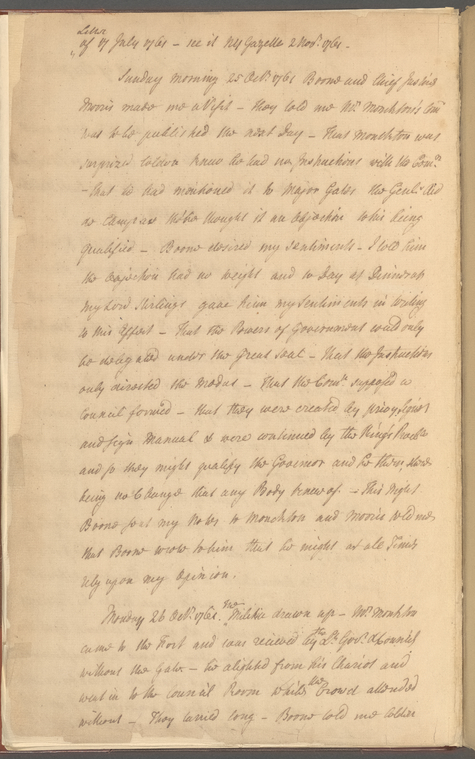 Letter
of 17 July 1761 – see it NY Gazette 2 Novr. 1761.
Sunday morning 25 Octr. 1761 Boone and Chief Justice
Morris made me a Visit – they told me Mr. Monckton's Comn
was to be published the next Day – that Monckton was
surprized Colden knew he had no Instructions with the Comn.
– that he had mentioned it to Major Gates the Genl. Aid
de Camp as tho' he thought it an objection to his being
qualified – Boone desired my Sentiments – I told him
the objection had no weight and to Day at Dinner at
my Lord Stirlings gave him my Sentiments in Writing
to this Effect – That the Powers of Government could only
be delegated under the Great Seal – that the Instructions
only directed the modus – that the Comn. supposed a
Council formed – that they were created by privy Signet
and Sign Manual & were continued by the Kings
and so they might qualify the Governor and he them, there
being no Change that any Body knew of. – This Night
Boone sent my Notes to Monckton and Morris told me
that Boone wrote to him that he might at all Times
rely upon my opinion.
Monday 26 Octr. 1761. The Militia drawn up – Mr. Monckton
came to the Fort and was received by the Lt. Govr. & Council
without the Gate – he alighted from his Chariot and
went in to the Council Room while the Crowd attended
without – They tarried long – Boone told me Colden